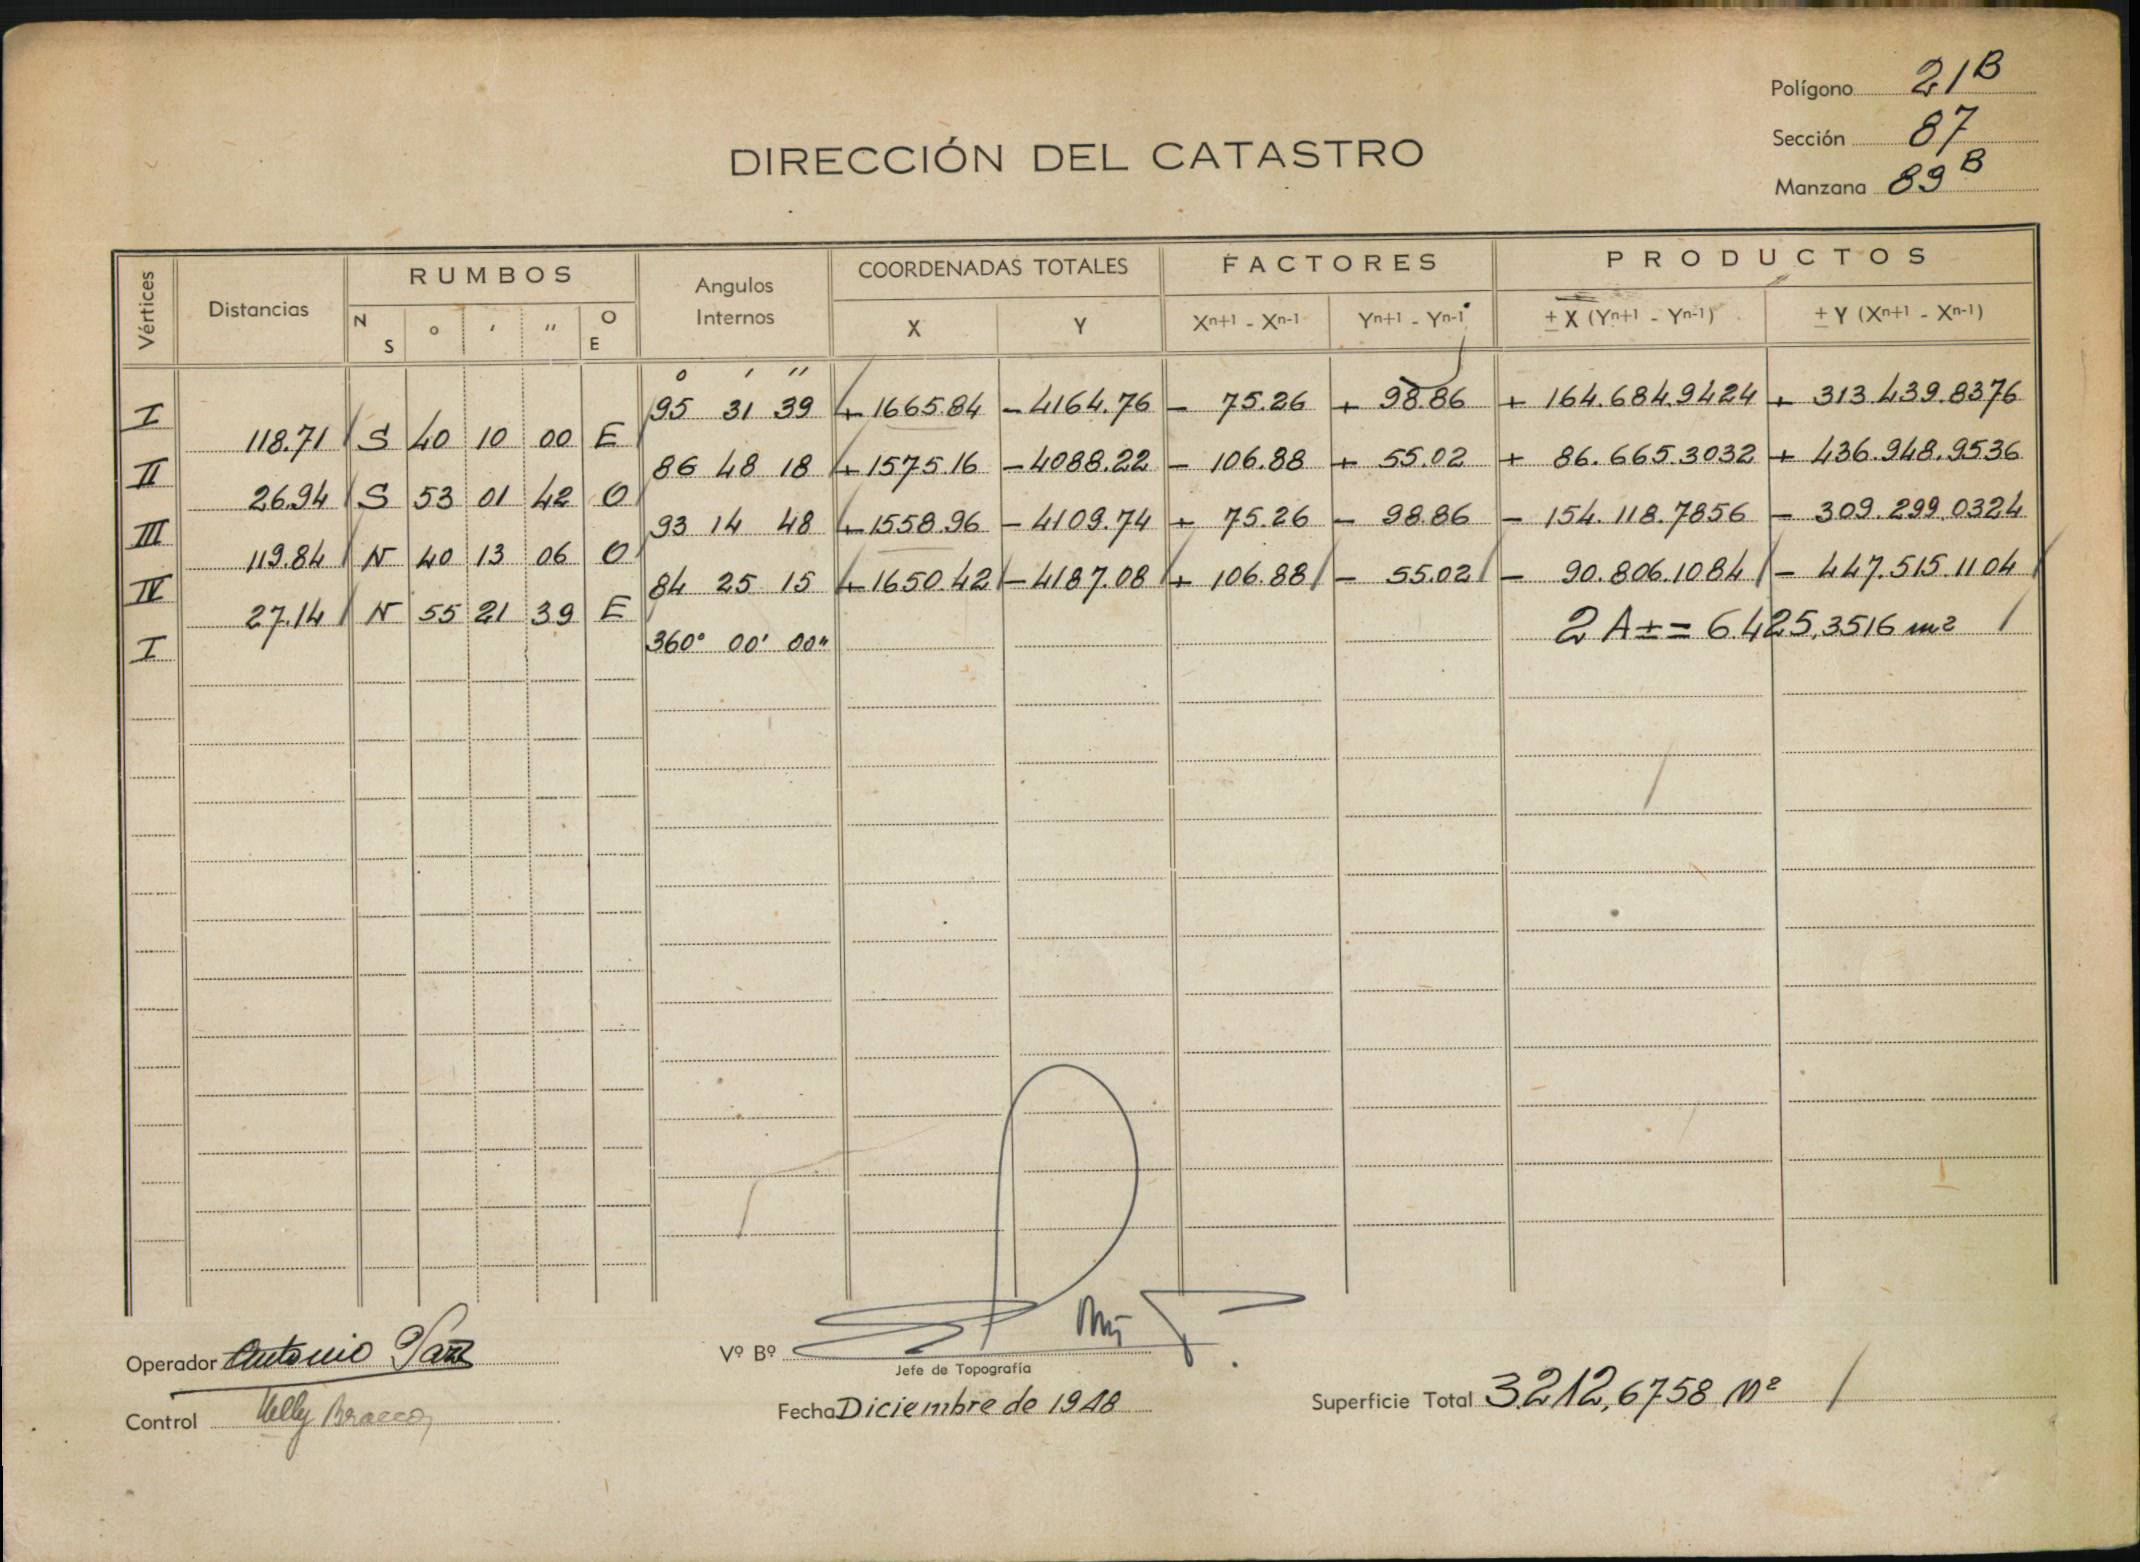 Polígono 21B
Sección 87
Manzana 89B
DIRECCIÓN DEL CATASTRO
Vértices Distancias RUMBOS Angulos Internos COORDENADAS TOTALES FACTORES PRODUCTOS
N S ° ' " O E X Y Xn+1 - Xn-1 Yn+1 - Yn-1 ± X (Yn+1 - Yn-1) ± Y (Xn+1 - Xn-1)
° ' "
I 95 31 39 + 1665.84 - 4164.76 - 75.26 + 98.86 + 164.684.9424 + 313.439.8376
118.71 S 40 10 00 E
II 86 48 18 + 1575.16 - 4088.22 - 106.88 + 55.02 + 86.665.3032 + 436.948.9536
26.94 S 53 01 42 O
III 93 14 48 + 1558.96 - 4109.74 + 75.26 - 98.86 - 154.118.7856 - 309.299.0324
119.84 N 40 13 06 O
IV 84 25 15 + 1650.42 - 4187.08 + 106.88 - 55.02 - 90.806.1084 - 447.515.1104
27.14 N 55 21 39 E
I 360° 00' 00" 2 A ± = 6.425,3516 m²
Operador Antonio
Vº Bº
Jefe de Topografía
Control Nelly
Fecha Diciembre de 1948
Superficie Total 3.212,6758 M²